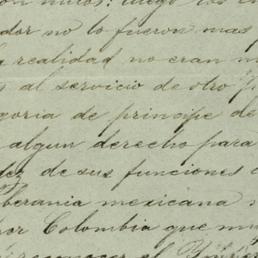 luego los
dor no lo fueron mas
realidad no eran
al servicio de otro
goria de principe de
algun derecho para
dez de sus funciones
berania mexicana
por Colombia que
el